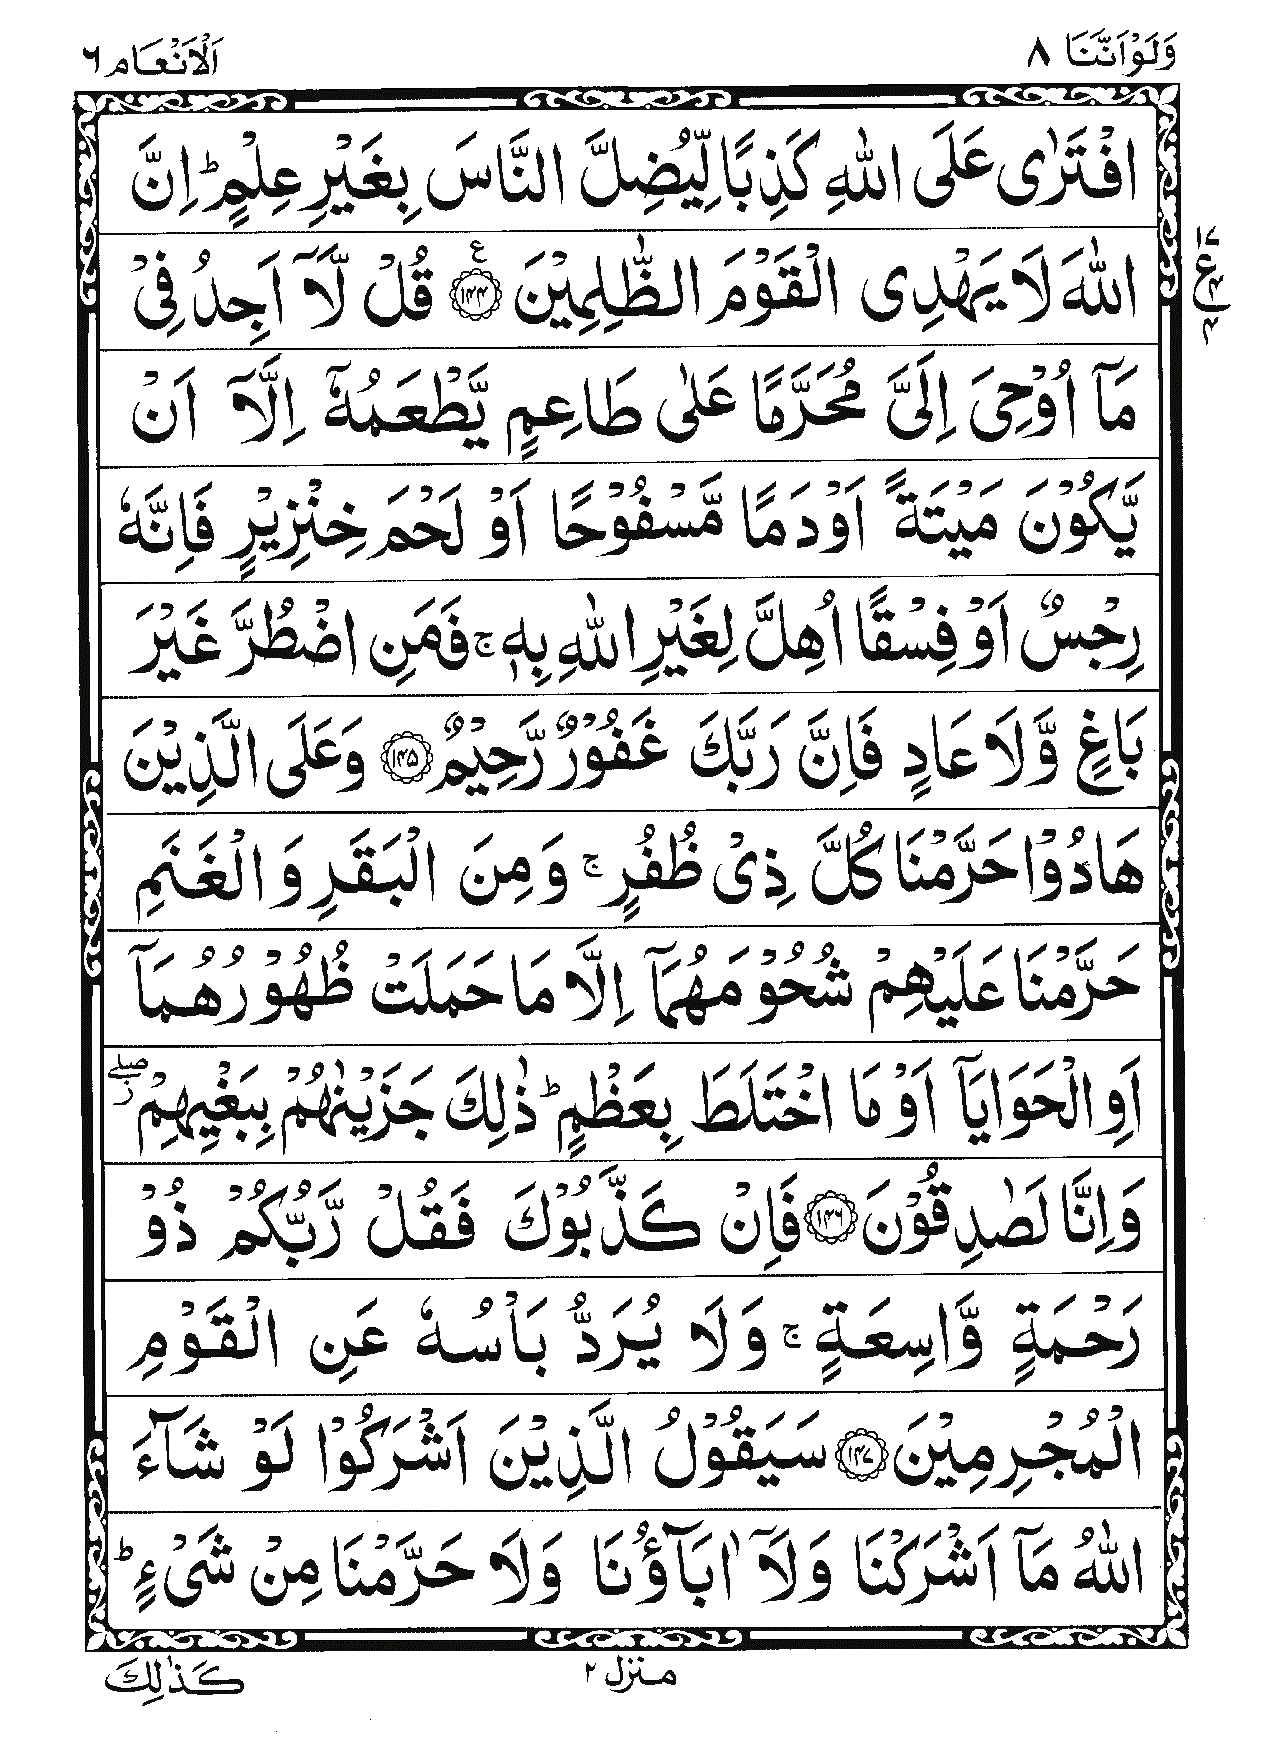 وَلَوْاَنَّنَا ٨
اَلْاَنْعَام ٦
افْتَرٰى عَلَى اللّٰهِ كَذِبًا لِّيُضِلَّ النَّاسَ بِغَيْرِ عِلْمٍ ؕ اِنَّ
اللّٰهَ لَا يَهْدِى الْقَوْمَ الظّٰلِمِيْنَ ع ﴿۱۴۴﴾ قُلْ لَّاۤ اَجِدُ فِىْ
١٧
ع
۴
۴
مَاۤ اُوْحِىَ اِلَىَّ مُحَرَّمًا عَلٰى طَاعِمٍ يَّطْعَمُهٗۤ اِلَّاۤ اَنْ
يَّكُوْنَ مَيْتَةً اَوْ دَمًا مَّسْفُوْحًا اَوْ لَحْمَ خِنْزِيْرٍ فَاِنَّهٗ
رِجْسٌ اَوْ فِسْقًا اُهِلَّ لِغَيْرِ اللّٰهِ بِهٖ ۚ فَمَنِ اضْطُرَّ غَيْرَ
بَاغٍ وَّلَا عَادٍ فَاِنَّ رَبَّكَ غَفُوْرٌ رَّحِيْمٌ ﴿۱۴۵﴾ وَعَلَى الَّذِيْنَ
هَادُوْا حَرَّمْنَا كُلَّ ذِىْ ظُفُرٍ ۚ وَمِنَ الْبَقَرِ وَالْغَنَمِ
حَرَّمْنَا عَلَيْهِمْ شُحُوْمَهُمَاۤ اِلَّا مَا حَمَلَتْ ظُهُوْرُهُمَاۤ
اَوِ الْحَوَايَاۤ اَوْ مَا اخْتَلَطَ بِعَظْمٍ ؕ ذٰلِكَ جَزَيْنٰهُمْ بِبَغْيِهِمْ ز ۖ
وَاِنَّا لَصٰدِقُوْنَ ﴿۱۴۶﴾ فَاِنْ كَذَّبُوْكَ فَقُلْ رَّبُّكُمْ ذُوْ
رَحْمَةٍ وَّاسِعَةٍ ۚ وَلَا يُرَدُّ بَاْسُهٗ عَنِ الْقَوْمِ
الْمُجْرِمِيْنَ ﴿۱۴۷﴾ سَيَقُوْلُ الَّذِيْنَ اَشْرَكُوْا لَوْ شَآءَ
اللّٰهُ مَاۤ اَشْرَكْنَا وَلَاۤ اٰبَآؤُنَا وَلَا حَرَّمْنَا مِنْ شَىْءٍ ؕ
منزل ٢
كَذٰلِكَ